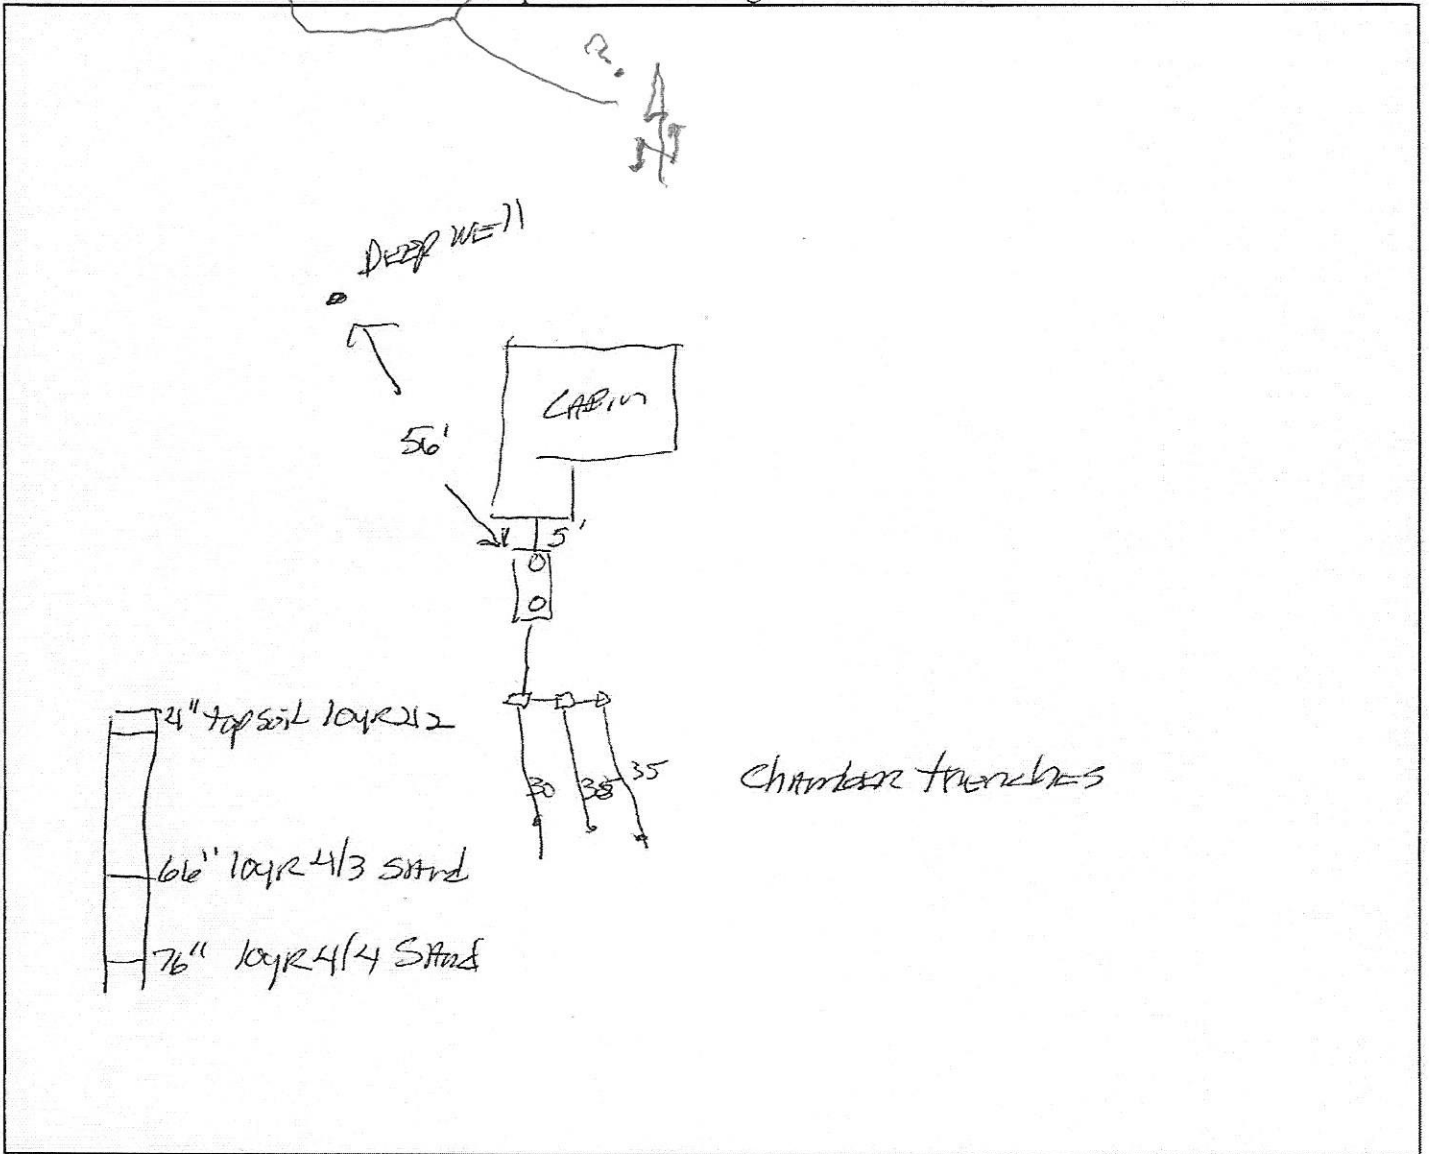 N
DEEP WEll
CABIN
56'
5'
4" topsoil 10yR 2/2
30
35
35
Chamber trenches
66" 10yR 4/3 SAnd
76" 10yR 4/4 SAnd